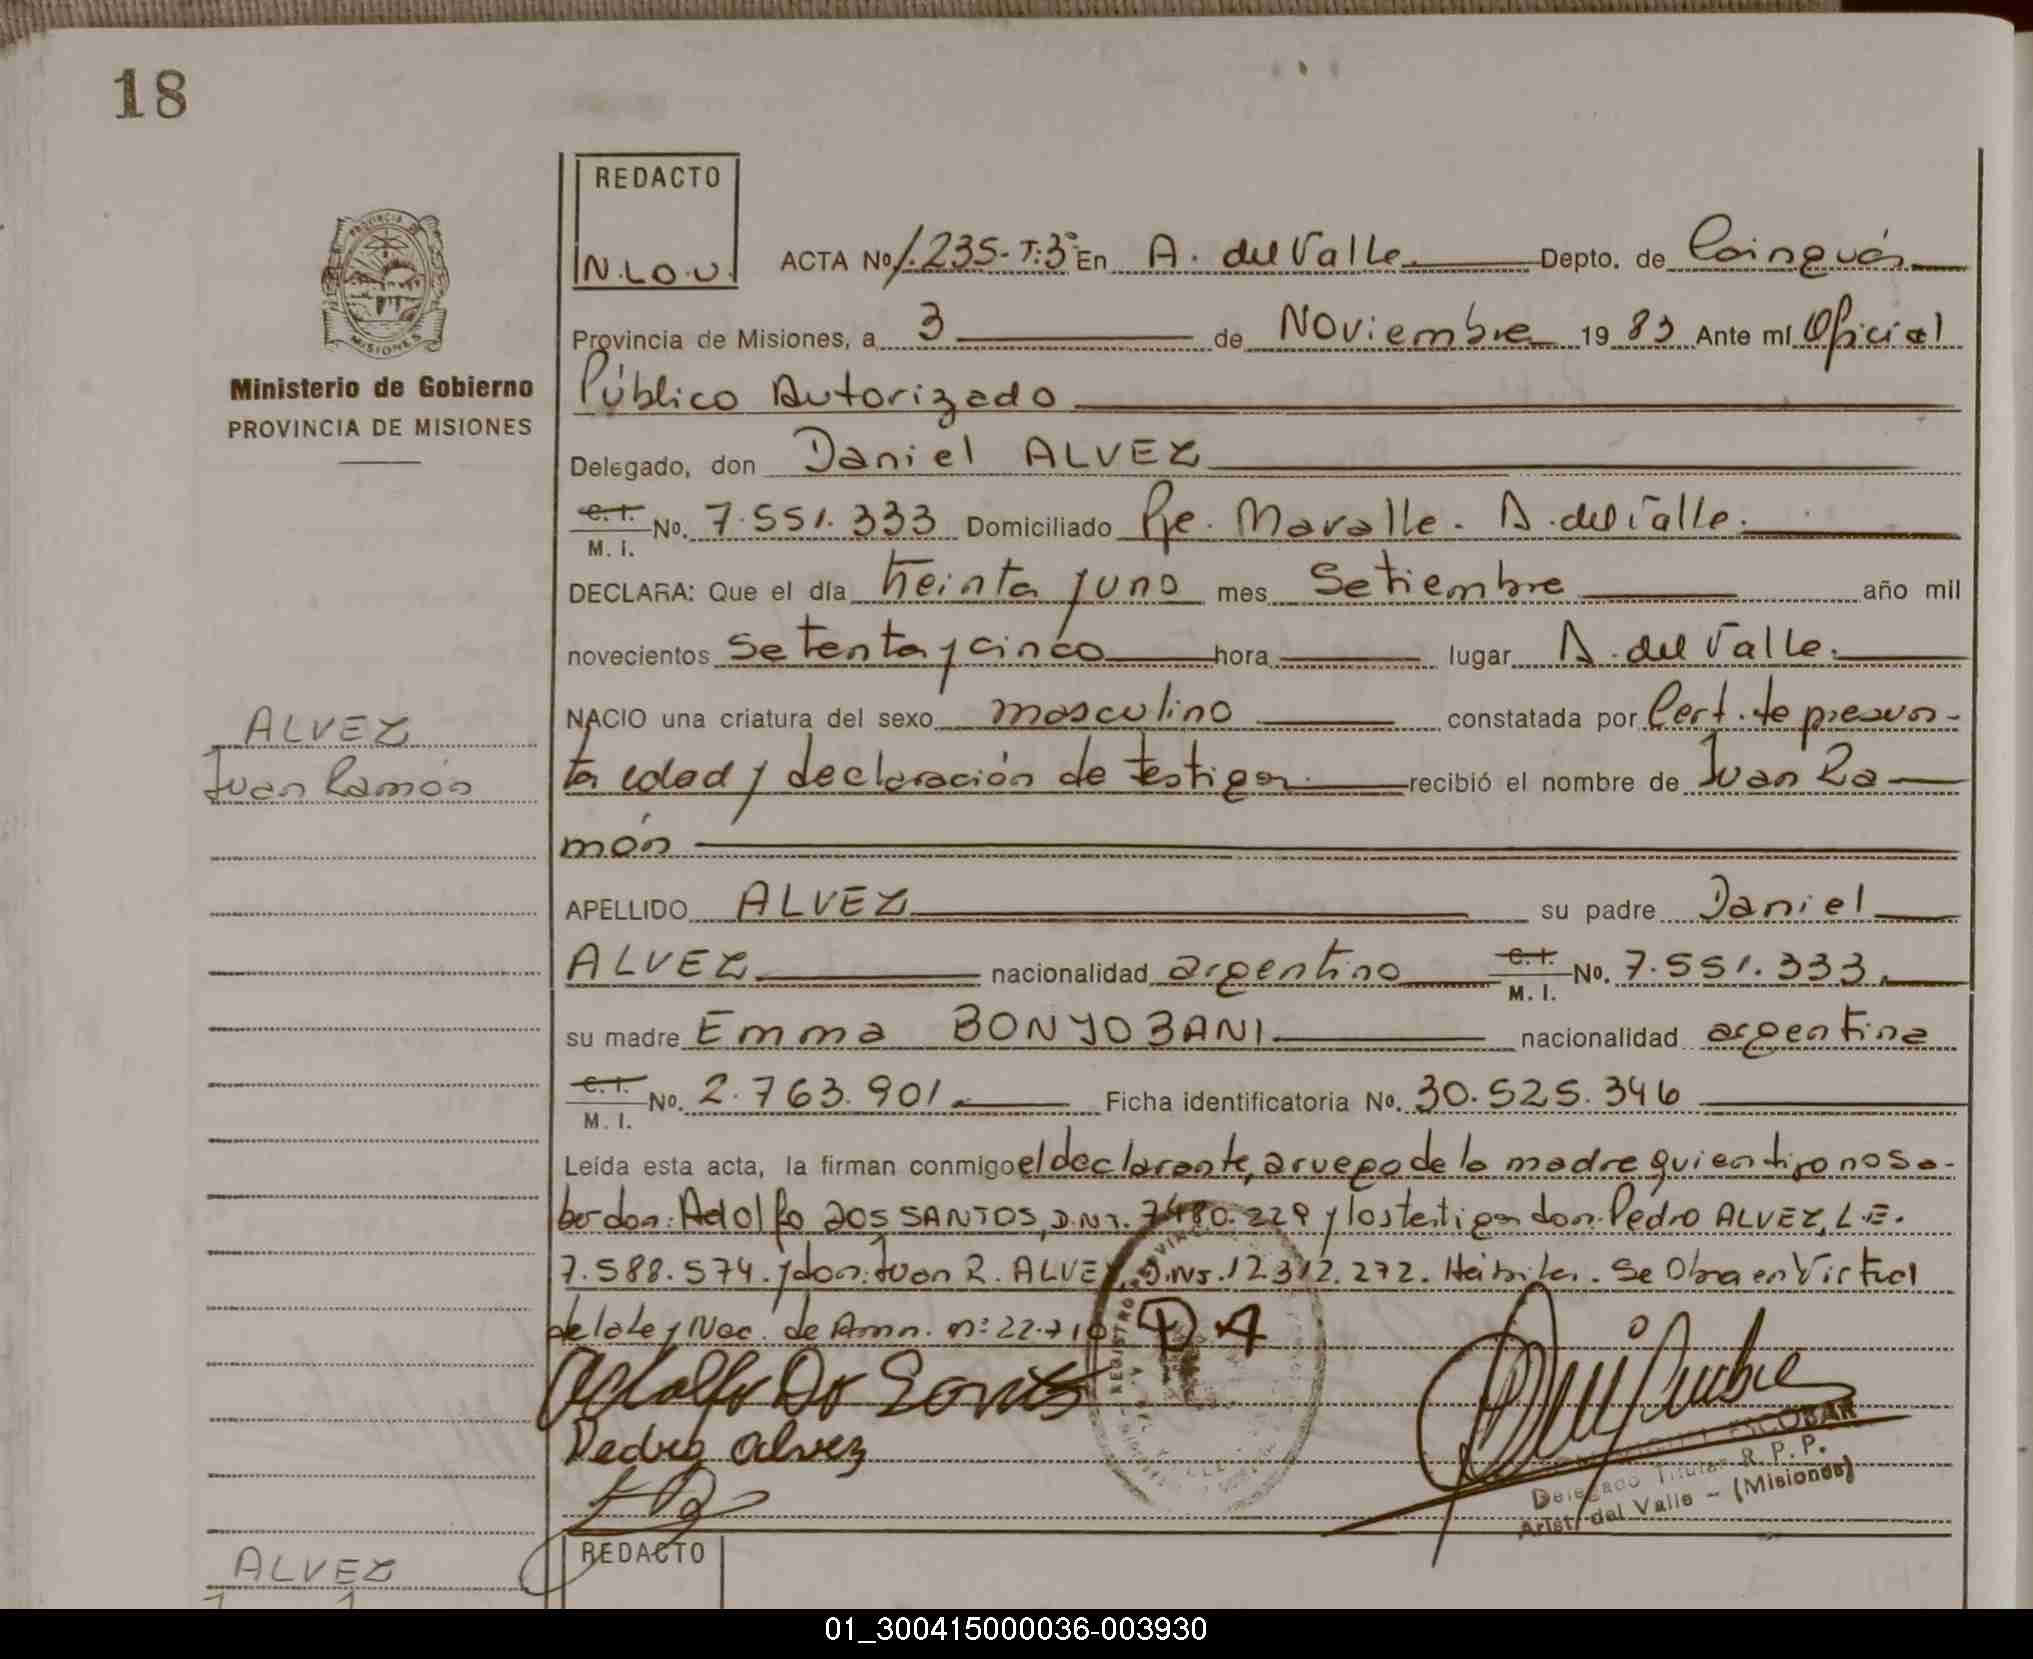 18
REDACTO
N.L.O.U.
ACTA No 1.235-T:3° En A. del Valle Depto. de Cainguás
PROVINCIA DE
MISIONES
Provincia de Misiones, a 3 de Noviembre 1983 Ante mí Oficial
Ministerio de Gobierno
PROVINCIA DE MISIONES
Público Autorizado
Delegado, don Daniel ALVEZ
C. I. M. I. No. 7.551.333 Domiciliado Pje. Mavalle. A. del Valle.
DECLARA: Que el día treinta y uno mes Setiembre año mil
novecientos setenta y cinco hora lugar A. del Valle.
NACIO una criatura del sexo masculino constatada por Cert. de presun-
ALVEZ
Juan Ramón
ta edad y declaración de testigos recibió el nombre de Juan Ra
món
APELLIDO ALVEZ su padre Daniel
ALVEZ nacionalidad argentino C. I. M. I. No. 7.551.333.
su madre Emma BONYOBANI nacionalidad argentina
C. I. M. I. No. 2.763.901. Ficha identificatoria No. 30.525.346
Leída esta acta, la firman conmigo el declarante, a ruego de la madre quien dijo no sa-
ber don: Adolfo DOS SANTOS, D.N.I. 7480.229 y los testigos don: Pedro ALVEZ, L.E.
7.588.574. y don: Juan R. ALVEZ, D.N.I. 12.312.272. Hábiles. Se Obra en Virtud
de la Ley Nac. de Amn. n: 22.710
Adolfo Do Santos
Pedro alvez
ESCOBAR
Delegado Titular R. P. P.
Arist. del Valle - (Misiones)
REDACTO
ALVEZ
01_300415000036-003930